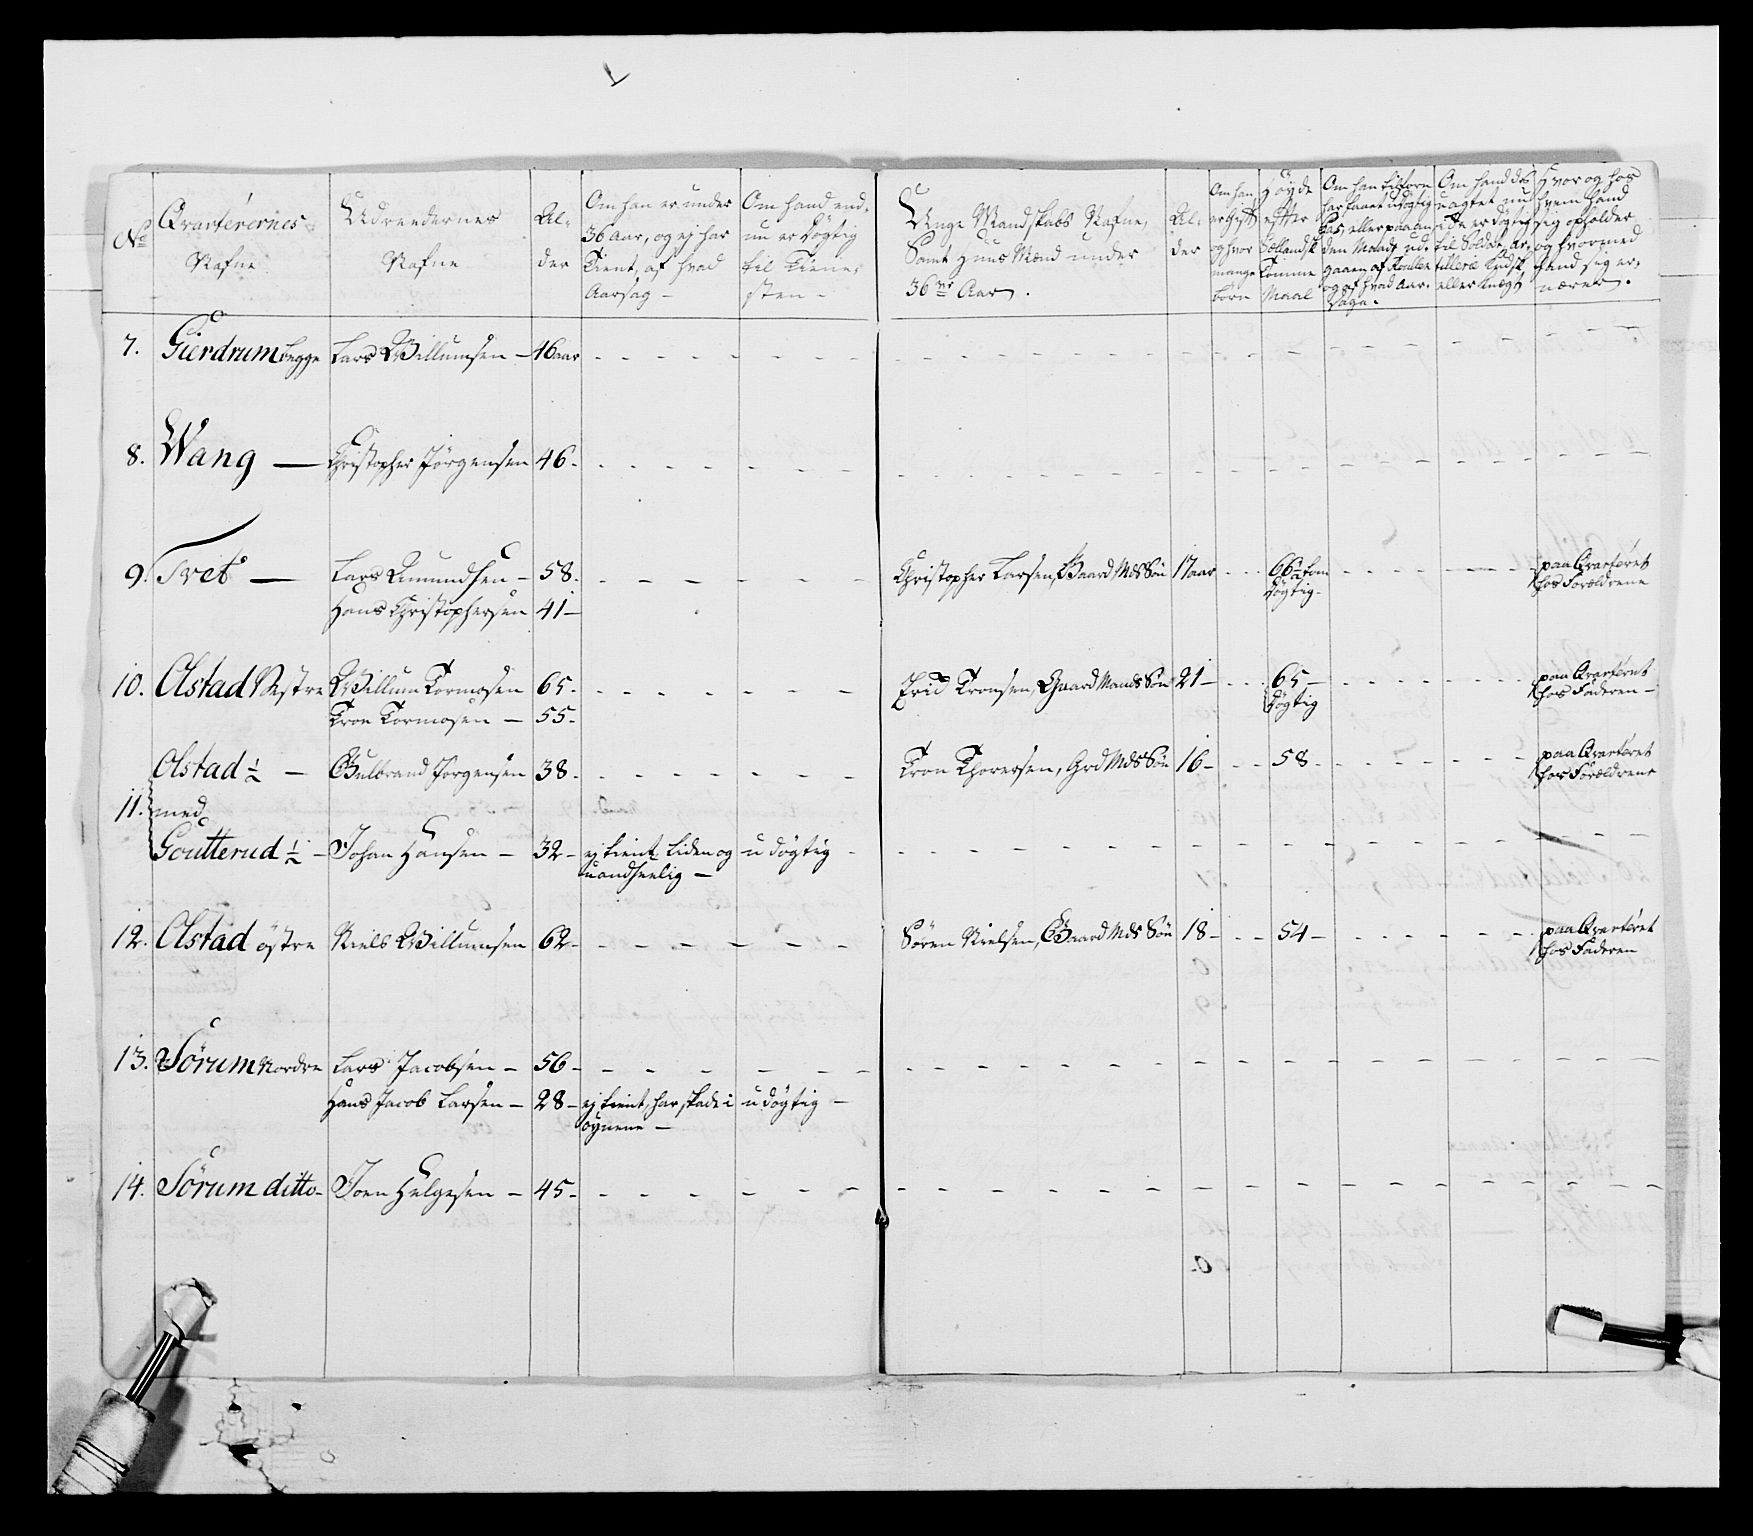 No
Qvarterernes Nafne
Udreedernes Nafne
Al- der
Om han er under 36 Aar, og ej har tient, af hvad Aarsag –
Om hand end- nu er døgtig til tiene- sten –
Unge Mandskabs Nafne, Samt Huus Mænd under 36 Aar.
Al- der
Om han er gift og hvor mange børn
Høyde efter Sællandsk Tomme Maal
Hvor og hos hvem hand sig opholder og hvormed hand sig er- nærer.
7. Gierdrum begge Lars Willumsen – 46 aar
8. Wang — Christopher Jörgensen 46 –
9. Tvet — Lars Amundsen – 58. Christopher Larsen, Gaard Mds Sön 17 aar 66 a tom døgtig – paa Qvarteret hos Forældrene
Hans Christophersen 41 –
10. Olstad Westre Willum Tormosen 65 – Tron Tronsen, Gaard Mands Sön 21 – 65 – døgtig paa Qvarteret hos Faderen –
Tron Tormosen – 55 –
Olstad ½ – Gulbrand Jorgensen 38 – Tron Thoresen, Grd Mds Sön 16 – 58 – paa Qvarteret hos Forældrene
11. med
Goutterud ½ – Johan Hansen – 32 – ej tient liden og uandseelig – udögtig
12. Olstad östre Niels Willumsen 62 – Sören Nielsen, Gaard Mds Sön 18 – 54 – paa Qvarteret hos Faderen
13. Sörum Nordre Lars Jacobsen – 56 –
Hans Jacob Larsen – 28 – ej tient, har skade i öynene – udögtig –
14. Sörum ditto – Joen Helgesen – 45 –